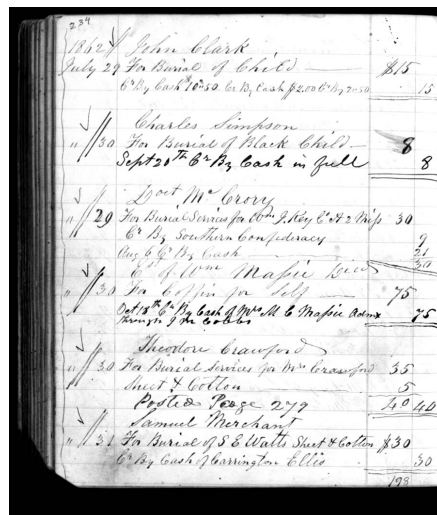 234
1862 John Clark
July 29 For Burial of Child $15
Cr By Cash 10.50 Cr By Cash $2.00 Cr By 2.50 15
Charles Simpson
" 30 For Burial of Black Child 8
Sept 20th Cr By Cash in full 8
Doct Mc Crory
" 29 For Burial Services for Wm J. Key Co H 2 Miss 30
Cr By Southern Confederacy 9
Aug 6 Cr By Cash 21
30
Est of Wm Massie Dec'd
" 30 For Coffin for Self 75
Oct 18th Cr By Cash of Mrs M C Massie Admx 75
through
Theodore Crawford
" 30 For Burial Services for Mrs Crawford 35
Sheet & Cotton 5
Posted Page 279 40 40
Samuel Merchant
" 31 For Burial of S E Watts Sheet & Cotton $30
Cr By Cash of Carrington Ellis 30
198